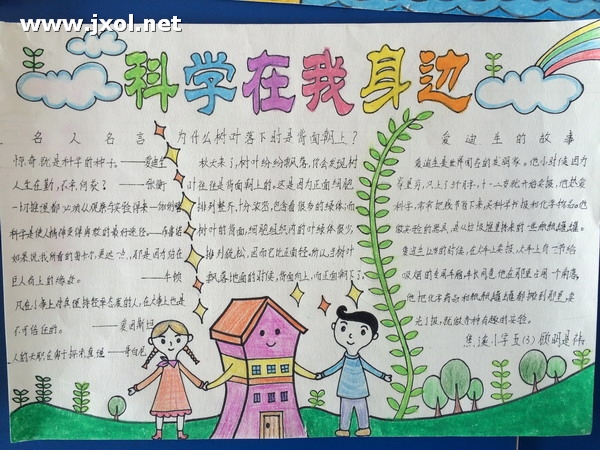 www.jxol.net
科学在我身边
名人名言
惊奇就是科学的种子。——爱迪生
人生在勤，不索何获？——张衡
一切推理都必须从观察与实验得来——伽利略
科学是使人精神变得勇敢的最好途径。——布鲁诺
如果说我所看的比
更远一点，那是因为站在
巨人肩上的缘故。——牛顿
凡在小事上对真理持轻率态度的人，在大事上也是
不可信任的。——爱因斯坦
人的天职在勇于探索真理——哥白尼
为什么树叶落下时是背面朝上？
秋天来了，树叶纷纷飘落，你会发现树
叶往往是背面朝上的。这是因为正面细胞
排列整齐、十分浓密，包含着很多的绿体，而
树叶的背面，细胞组织内的叶绿体很少，
排列疏松，因而它比正面轻。所以当树叶
飘落地面的时候，背面向上，而正面朝下了。
爱迪生的故事
爱迪生是世界闻名的发明家。他小时候因为
只上了3个月学，十一二岁就开始卖报，他热爱
科学，常常把钱节省下来，买科学书报和化学药品。他
做实验的器具，是从垃圾堆里拣来的一些瓶瓶罐罐。
爱迪生12岁的时候，在火车上卖报，火车上有一节给
吸烟的专用车厢，车长同意他在那里占用一个角落，
他把化学药品和瓶瓶罐罐都搬到那里，卖
完了报，就做各种有趣的实验。
小学五(3)